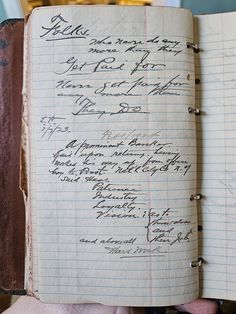 Folks.
Who never do any
more than they
Get Paid for
Never get paid for
any more than
They Do
E.H.
A prominent Banker,
said upon retiring having
worked his way up from office
boy to Pres. Natl City B. N.Y
said Have
Patience
Industry
Loyalty
Vision as to
themselves
and
their Job
and above all
Hard Work